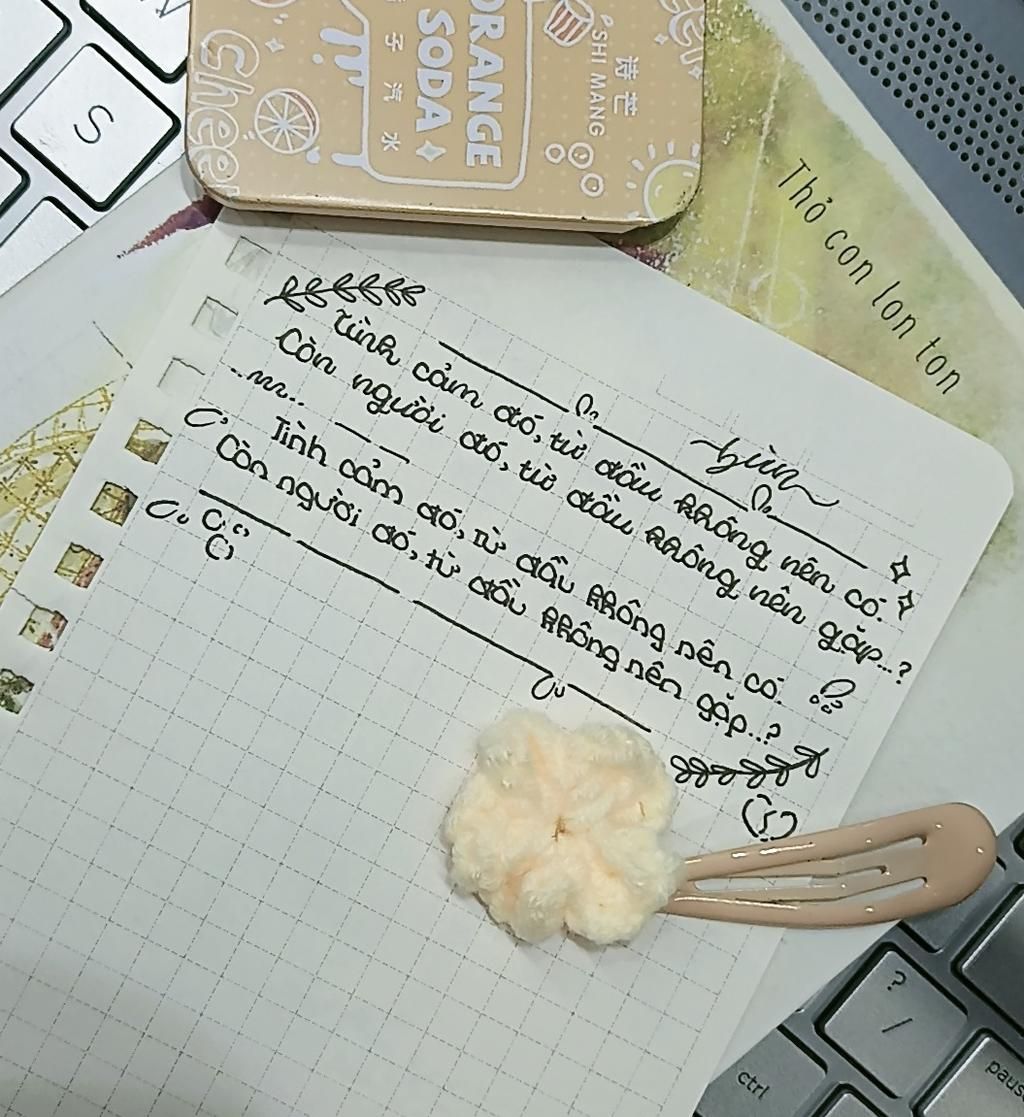 S
Cheer
ORANGE
SODA
子汽水
诗芒
SHI MANG
Thỏ con lon ton
Tình cảm đó, từ đầu không nên có.
Còn người đó, từ đầu không nên gặp...?
Tình cảm đó, từ đầu không nên có.
Còn người đó, từ đầu không nên gặp...?
?
/
ctrl
pause